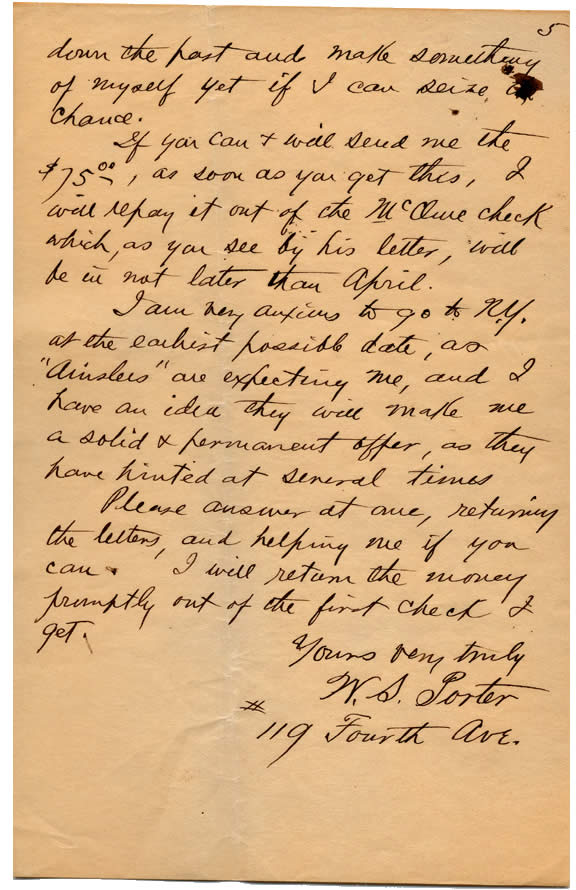 5
down the past and make something
of myself yet if I can seize a
chance.
If you can & will send me the
$75.00, as soon as you get this, I
will repay it out of the McClure check
which, as you see by his letter, will
be in not later than April.
I am very anxious to go to N.Y.
at the earliest possible date, as
"Ainslees" are expecting me, and I
have an idea they will make me
a solid & permanent offer, as they
have hinted at several times
Please answer at once, returning
the letters, and helping me if you
can. I will return the money
promptly out of the first check I
get.
Yours very truly
W. S. Porter
# 119 Fourth Ave.